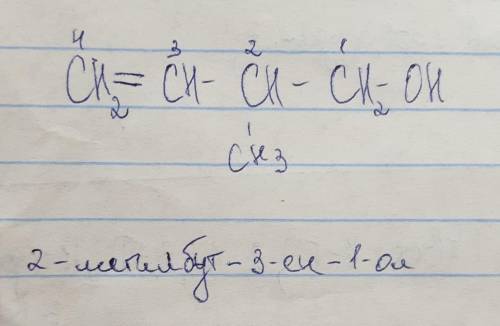 4 3 2 1
CH₂=CH-CH-CH₂-OH
CH3
2-метилбут-3-ен-1-ол